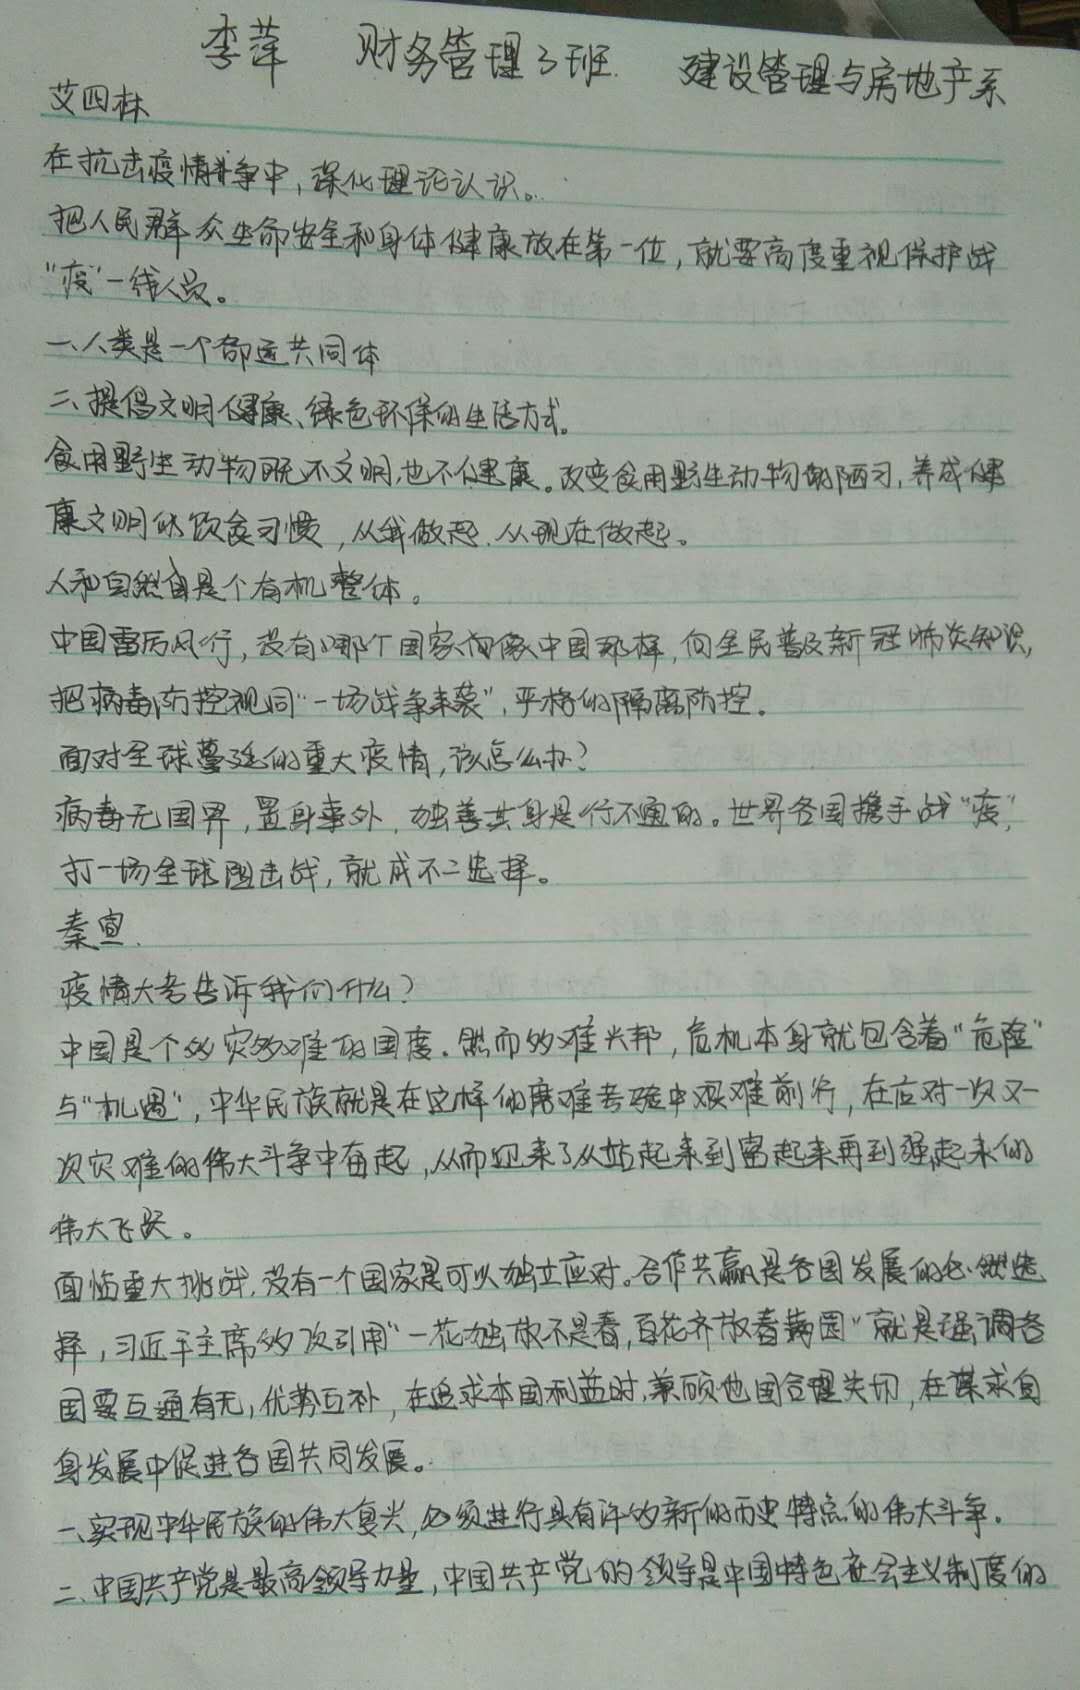 李萍 财务管理3班 建设管理与房地产系
艾四林
在抗击疫情斗争中，深化理论认识。
把人民群众生命安全和身体健康放在第一位，就要高度重视保护战
"疫"一线人员。
一、人类是一个命运共同体
二、提倡文明健康、绿色环保的生活方式。
食用野生动物既不文明，也不健康。改变食用野生动物的陋习，养成健
康文明的饮食习惯，从我做起，从现在做起。
人和自然是个有机整体。
中国雷厉风行，没有哪个国家像中国那样，向全民普及新冠肺炎知识，
把病毒防控视同"一场战争来袭"，严格的隔离防控。
面对全球蔓延的重大疫情，该怎么办？
病毒无国界，置身事外，独善其身是行不通的。世界各国携手战"疫"，
打一场全球阻击战，就成不二选择。
秦宣
疫情大考告诉我们什么？
中国是个多灾多难的国度。然而多难兴邦，危机本身就包含着"危险"
与"机遇"，中华民族就是在这样的磨难考验中艰难前行，在应对一次又一
次灾难的伟大斗争中奋起，从而迎来了从站起来到富起来再到强起来的
伟大飞跃。
面临重大挑战，没有一个国家是可以独立应对。合作共赢是各国发展的必然选
择，习近平主席多次引用"一花独放不是春，百花齐放春满园"就是强调各
国要互通有无，优势互补，在追求本国利益时，兼顾他国合理关切，在谋求自
身发展中促进各国共同发展。
一、实现中华民族的伟大复兴，必须进行具有许多新的历史特点的伟大斗争。
二、中国共产党是最高领导力量，中国共产党的领导是中国特色社会主义制度的